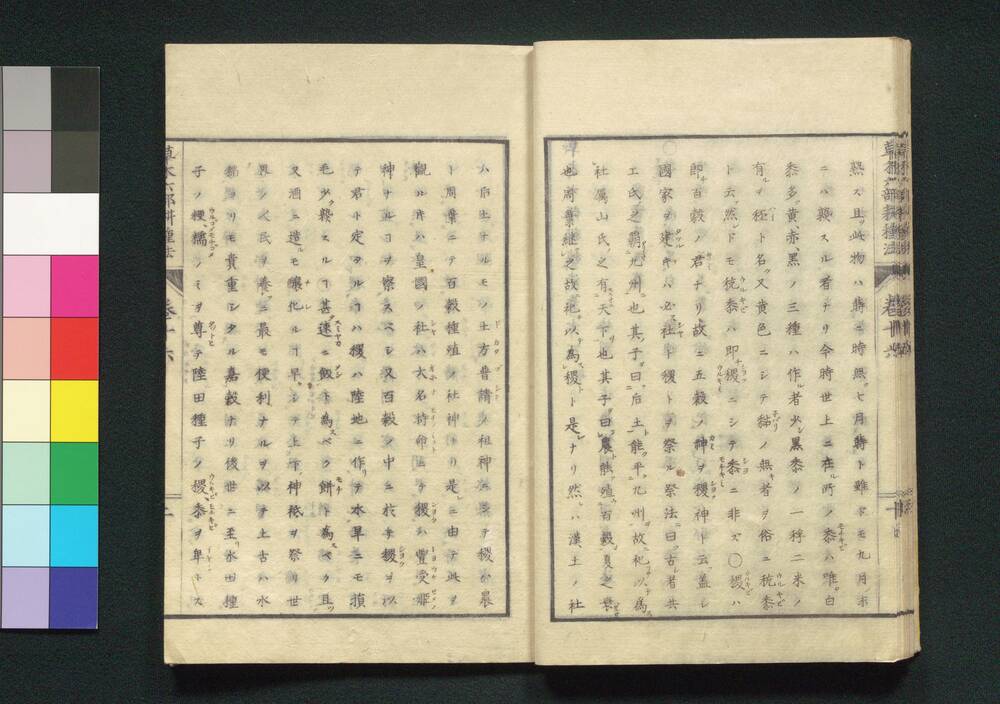 熟ス且ッ此物ハ蒔ニ時無ク七月蒔ト雖ドモ九月ニ
ニハ熟スル者ナリ今時世上ニ在ル所ノ黍ハ唯白
黍多ク黄、赤、黒ノ三種ハ作ル者少シ黒黍ノ一稃二米ノ
有ルヲ秠ト名ク又黄色ニシテ黏ノ無キ者ヲ俗ニ秔黍
ト云フ然レドモ秔黍ハ即チ稷ニシテ黍ニ非ズ〇稷ハ
即チ百穀ノ君ナリ故ニ五穀ノ神ヲ稷神ト云フ蓋シ
國家ヲ建ルキハ必ズ社ト稷トヲ祭ル祭法ニ曰ク古者共
工氏之覇九州也其子曰后土能平九州故祀以為
社厲山氏之有天下也其子曰農能殖百穀夏之衰
也周棄継之故祀以為稷ト是レナリ然レハ漢土ノ社
ハ后土ナルモノ土方普請ノ祖神ニシテ稷ハ農
ト周棄ニテ百穀種殖ノ社神ナリ是ニ由テ此ヲ
觀ルキハ皇國ノ社ハ大名持命ニテ稷ハ豊受姫
神ナルヿヲ察スベシ又百穀ノ中ニ於テ稷ヲ以
テ君ト定タルヿハ稷ハ陸地ニ作リテ水旱ニモ損
毛少ク熟スルヿ甚速ニ飯ト為スベク餅ト為スベク且ツ
又酒ニ造ルモ釀化ルヿ早クシテ上下神祇ヲ祭リ世
界ノ人民ヲ養フニ最モ便利ナルヲ以テ上古ハ水
稲ヨリモ貴重シタル嘉穀ナリ後世ニ至リ水田種
子ノ粳、糯ノミヲ尊テ陸田種子ノ稷、黍ヲ卑トス
草木六部耕種法
巻十六